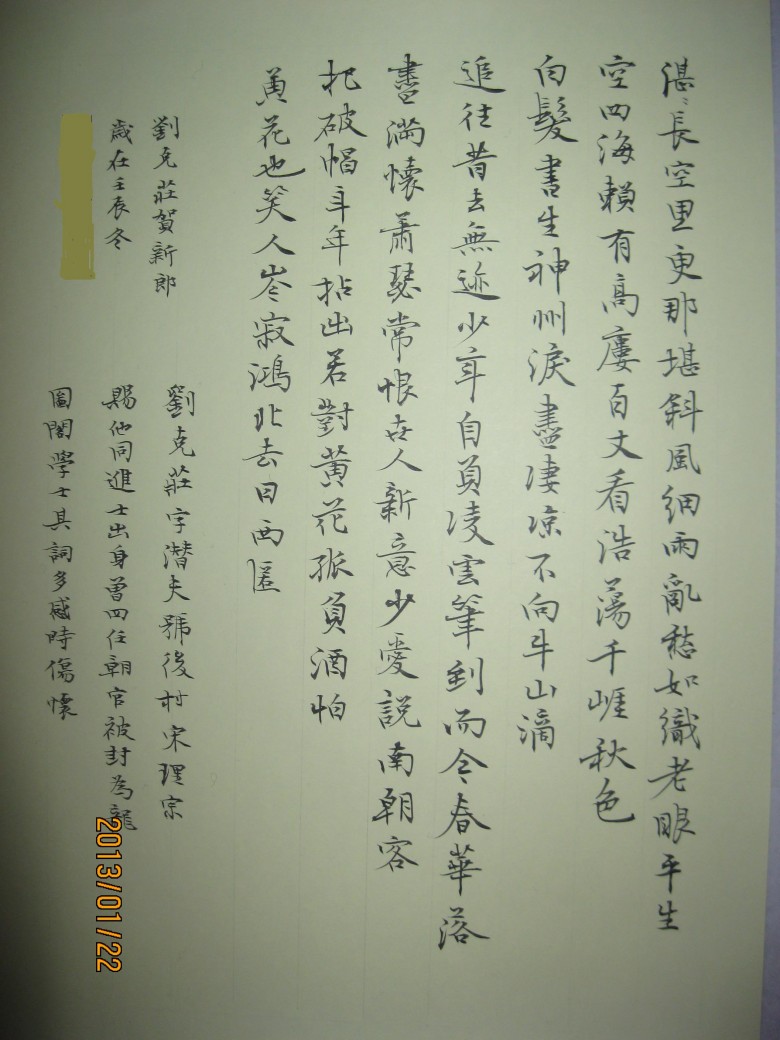 湛〻長空里更那堪斜風細雨亂愁如織老眼平生
空四海賴有高廔百丈看浩蕩千崕秋色
白髮書生神州淚盡凄凉不向牛山滴
追往昔去無迹少年自負凌雲筆到而今春華落
盡滿懷萧瑟常恨世人新意少愛説南朝客
把破帽年年拈出若對黄花孤負酒怕
黄花也笑人岑寂鴻北去日西匿
劉克莊賀新郎
歲在壬辰冬
劉克莊字潛夫號後村宋理宗
賜他同進士出身曾四任朝官被封為龍
圖閣學士其詞多感時傷懷
2013/01/22